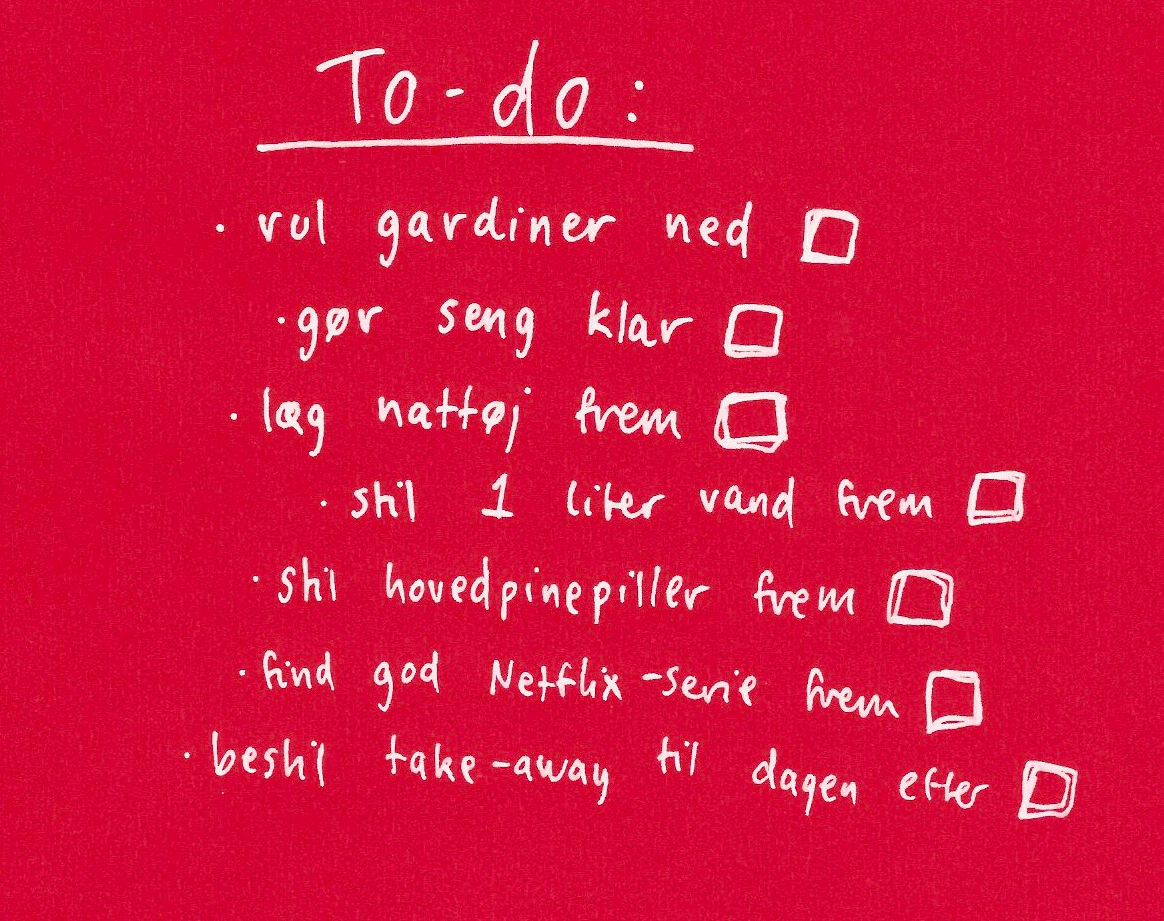 To-do:
· rul gardiner ned □
· gør seng klar □
· læg nattøj frem □
· stil 1 liter vand frem □
· stil hovedpinepiller frem □
· find god Netflix-serie frem □
· bestil take-away til dagen efter □